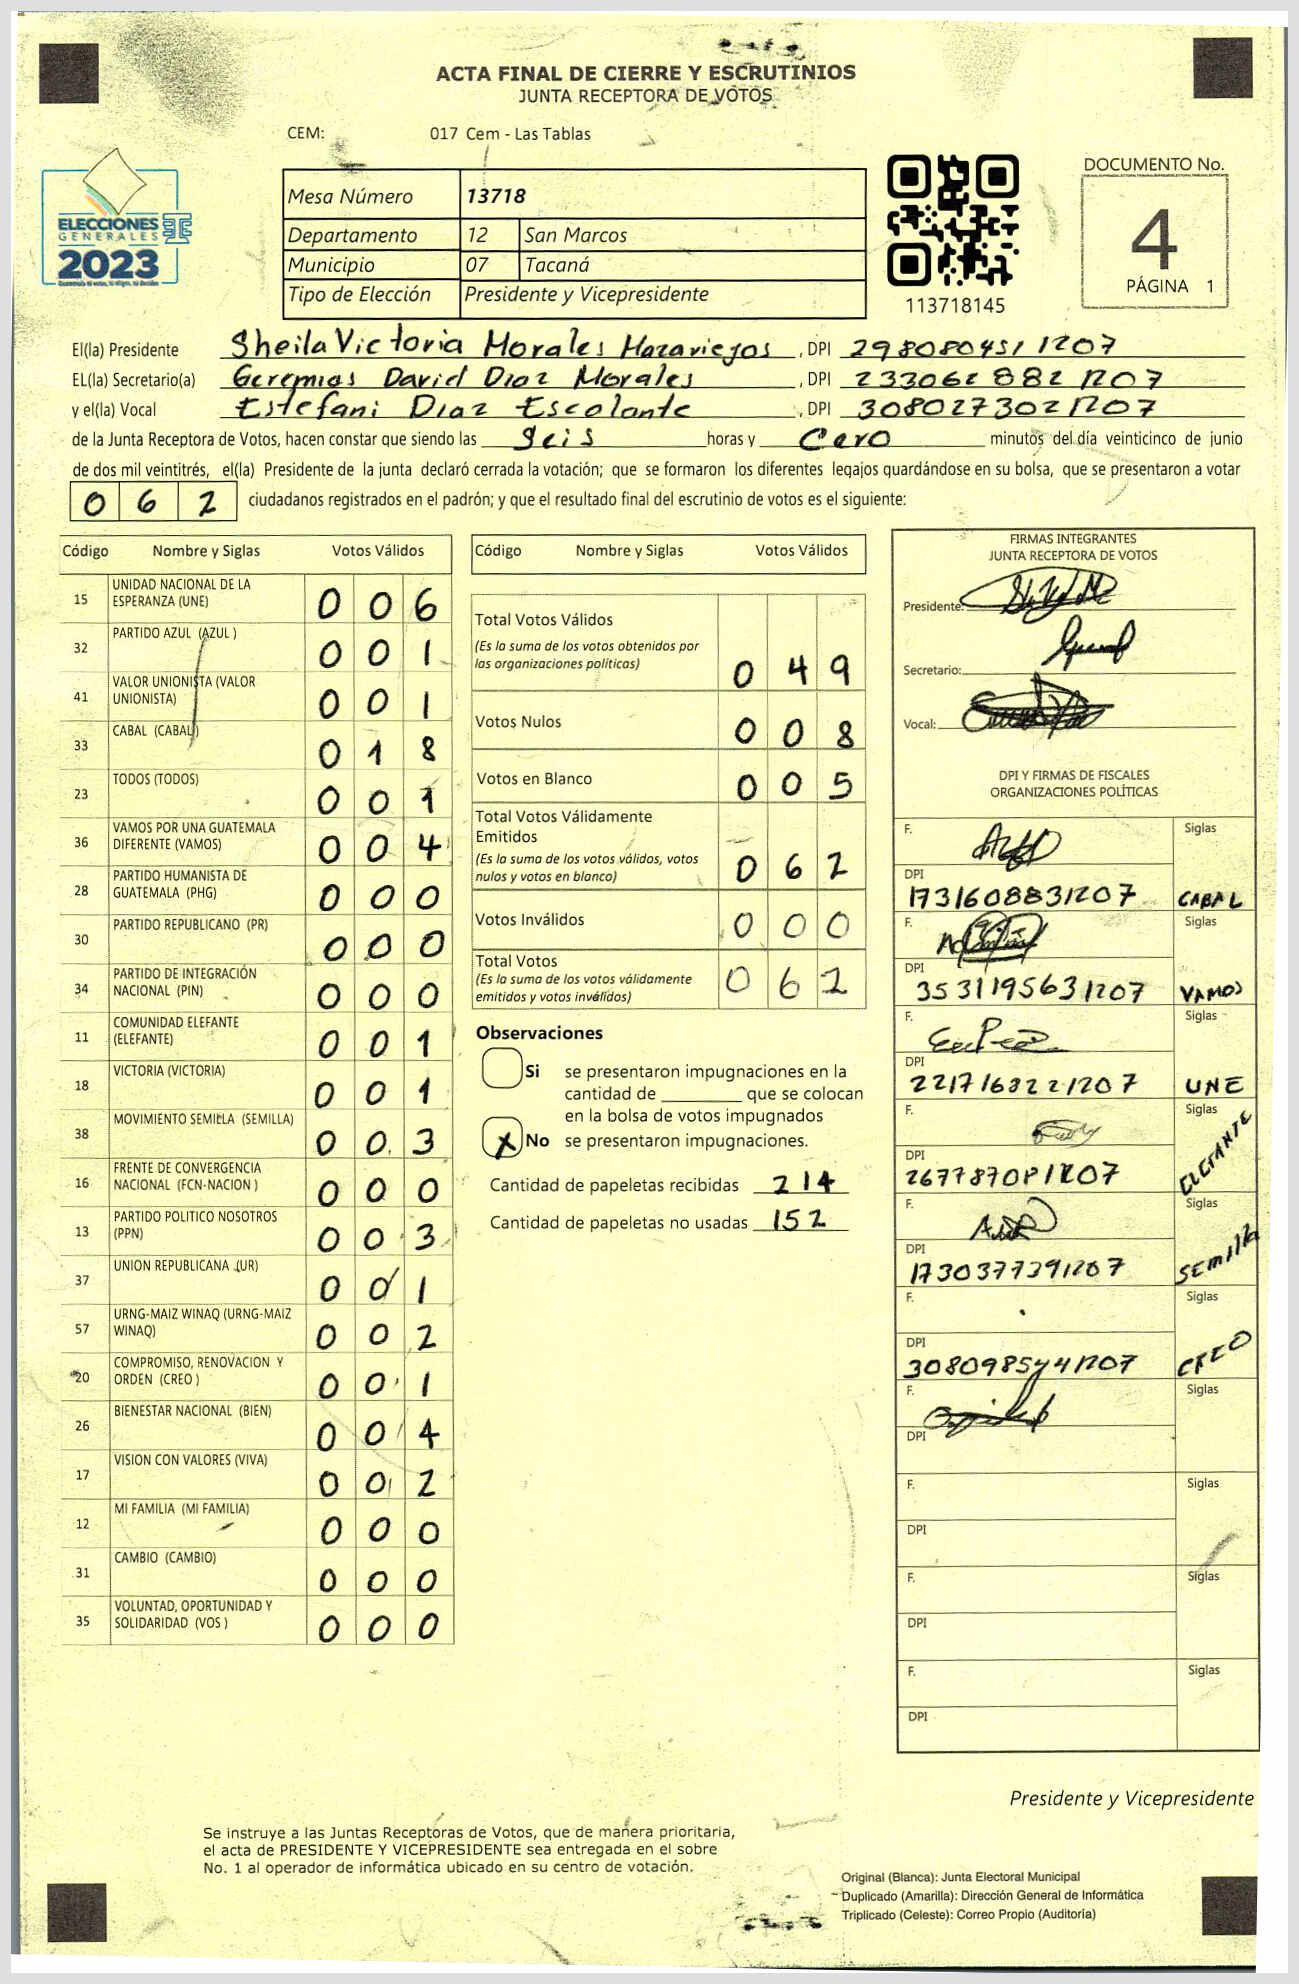 ACTA FINAL DE CIERRE Y ESCRUTINIOS
JUNTA RECEPTORA DE VOTOS
CEM: 017 Cem - Las Tablas
ELECCIONES
GENERALES
2023
Mesa Número 13718
Departamento 12 San Marcos
Municipio 07 Tacaná
Tipo de Elección Presidente y Vicepresidente
113718145
DOCUMENTO No.
4
PÁGINA 1
El(la) Presidente Sheila Victoria Morales Mazariegos, DPI 2980804511207
EL(la) Secretario(a) Geremias David Diaz Morales, DPI 2330628821207
y el(la) Vocal Estefani Diaz Escalante, DPI 3080273021207
de la Junta Receptora de Votos, hacen constar que siendo las Seis horas y Cero minutos del día veinticinco de junio
de dos mil veintitrés, el(la) Presidente de la junta declaró cerrada la votación; que se formaron los diferentes legajos quardándose en su bolsa, que se presentaron a votar
062 ciudadanos registrados en el padrón; y que el resultado final del escrutinio de votos es el siguiente:
Código Nombre y Siglas Votos Válidos
15 UNIDAD NACIONAL DE LA ESPERANZA (UNE) 006
32 PARTIDO AZUL (AZUL) 001
41 VALOR UNIONISTA (VALOR UNIONISTA) 001
33 CABAL (CABAL) 018
23 TODOS (TODOS) 001
36 VAMOS POR UNA GUATEMALA DIFERENTE (VAMOS) 004
28 PARTIDO HUMANISTA DE GUATEMALA (PHG) 000
30 PARTIDO REPUBLICANO (PR) 000
34 PARTIDO DE INTEGRACIÓN NACIONAL (PIN) 000
11 COMUNIDAD ELEFANTE (ELEFANTE) 001
18 VICTORIA (VICTORIA) 001
38 MOVIMIENTO SEMILLA (SEMILLA) 003
16 FRENTE DE CONVERGENCIA NACIONAL (FCN-NACION) 000
13 PARTIDO POLITICO NOSOTROS (PPN) 003
37 UNION REPUBLICANA (UR) 001
57 URNG-MAIZ WINAQ (URNG-MAIZ WINAQ) 002
20 COMPROMISO, RENOVACION Y ORDEN (CREO) 001
26 BIENESTAR NACIONAL (BIEN) 004
17 VISION CON VALORES (VIVA) 002
12 MI FAMILIA (MI FAMILIA) 000
31 CAMBIO (CAMBIO) 000
35 VOLUNTAD, OPORTUNIDAD Y SOLIDARIDAD (VOS) 000
Código Nombre y Siglas Votos Válidos
Total Votos Válidos
(Es la suma de los votos obtenidos por
las organizaciones políticas) 049
Votos Nulos 008
Votos en Blanco 005
Total Votos Válidamente
Emitidos
(Es la suma de los votos válidos, votos
nulos y votos en blanco) 062
Votos Inválidos 000
Total Votos
(Es la suma de los votos válidamente
emitidos y votos inválidos) 062
Observaciones
Si se presentaron impugnaciones en la
cantidad de ________ que se colocan
en la bolsa de votos impugnados
X No se presentaron impugnaciones.
Cantidad de papeletas recibidas 214
Cantidad de papeletas no usadas 152
FIRMAS INTEGRANTES
JUNTA RECEPTORA DE VOTOS
Presidente:
Secretario:
Vocal:
DPI Y FIRMAS DE FISCALES
ORGANIZACIONES POLÍTICAS
F. Siglas
DPI 1731608831207 CABAL
F. Siglas
DPI 3531195631207 VAMOS
F. Siglas
DPI 2217168221207 UNE
F. Siglas
DPI ELEFANTE
F. Siglas
DPI 1730377391207 SEMILLA
F. Siglas
DPI 3080985441207 CREO
F. Siglas
DPI
F. Siglas
DPI
F. Siglas
DPI
F. Siglas
DPI
Presidente y Vicepresidente
Se instruye a las Juntas Receptoras de Votos, que de manera prioritaria,
el acta de PRESIDENTE Y VICEPRESIDENTE sea entregada en el sobre
No. 1 al operador de informática ubicado en su centro de votación.
Original (Blanca): Junta Electoral Municipal
Duplicado (Amarilla): Dirección General de Informática
Triplicado (Celeste): Correo Propio (Auditoría)